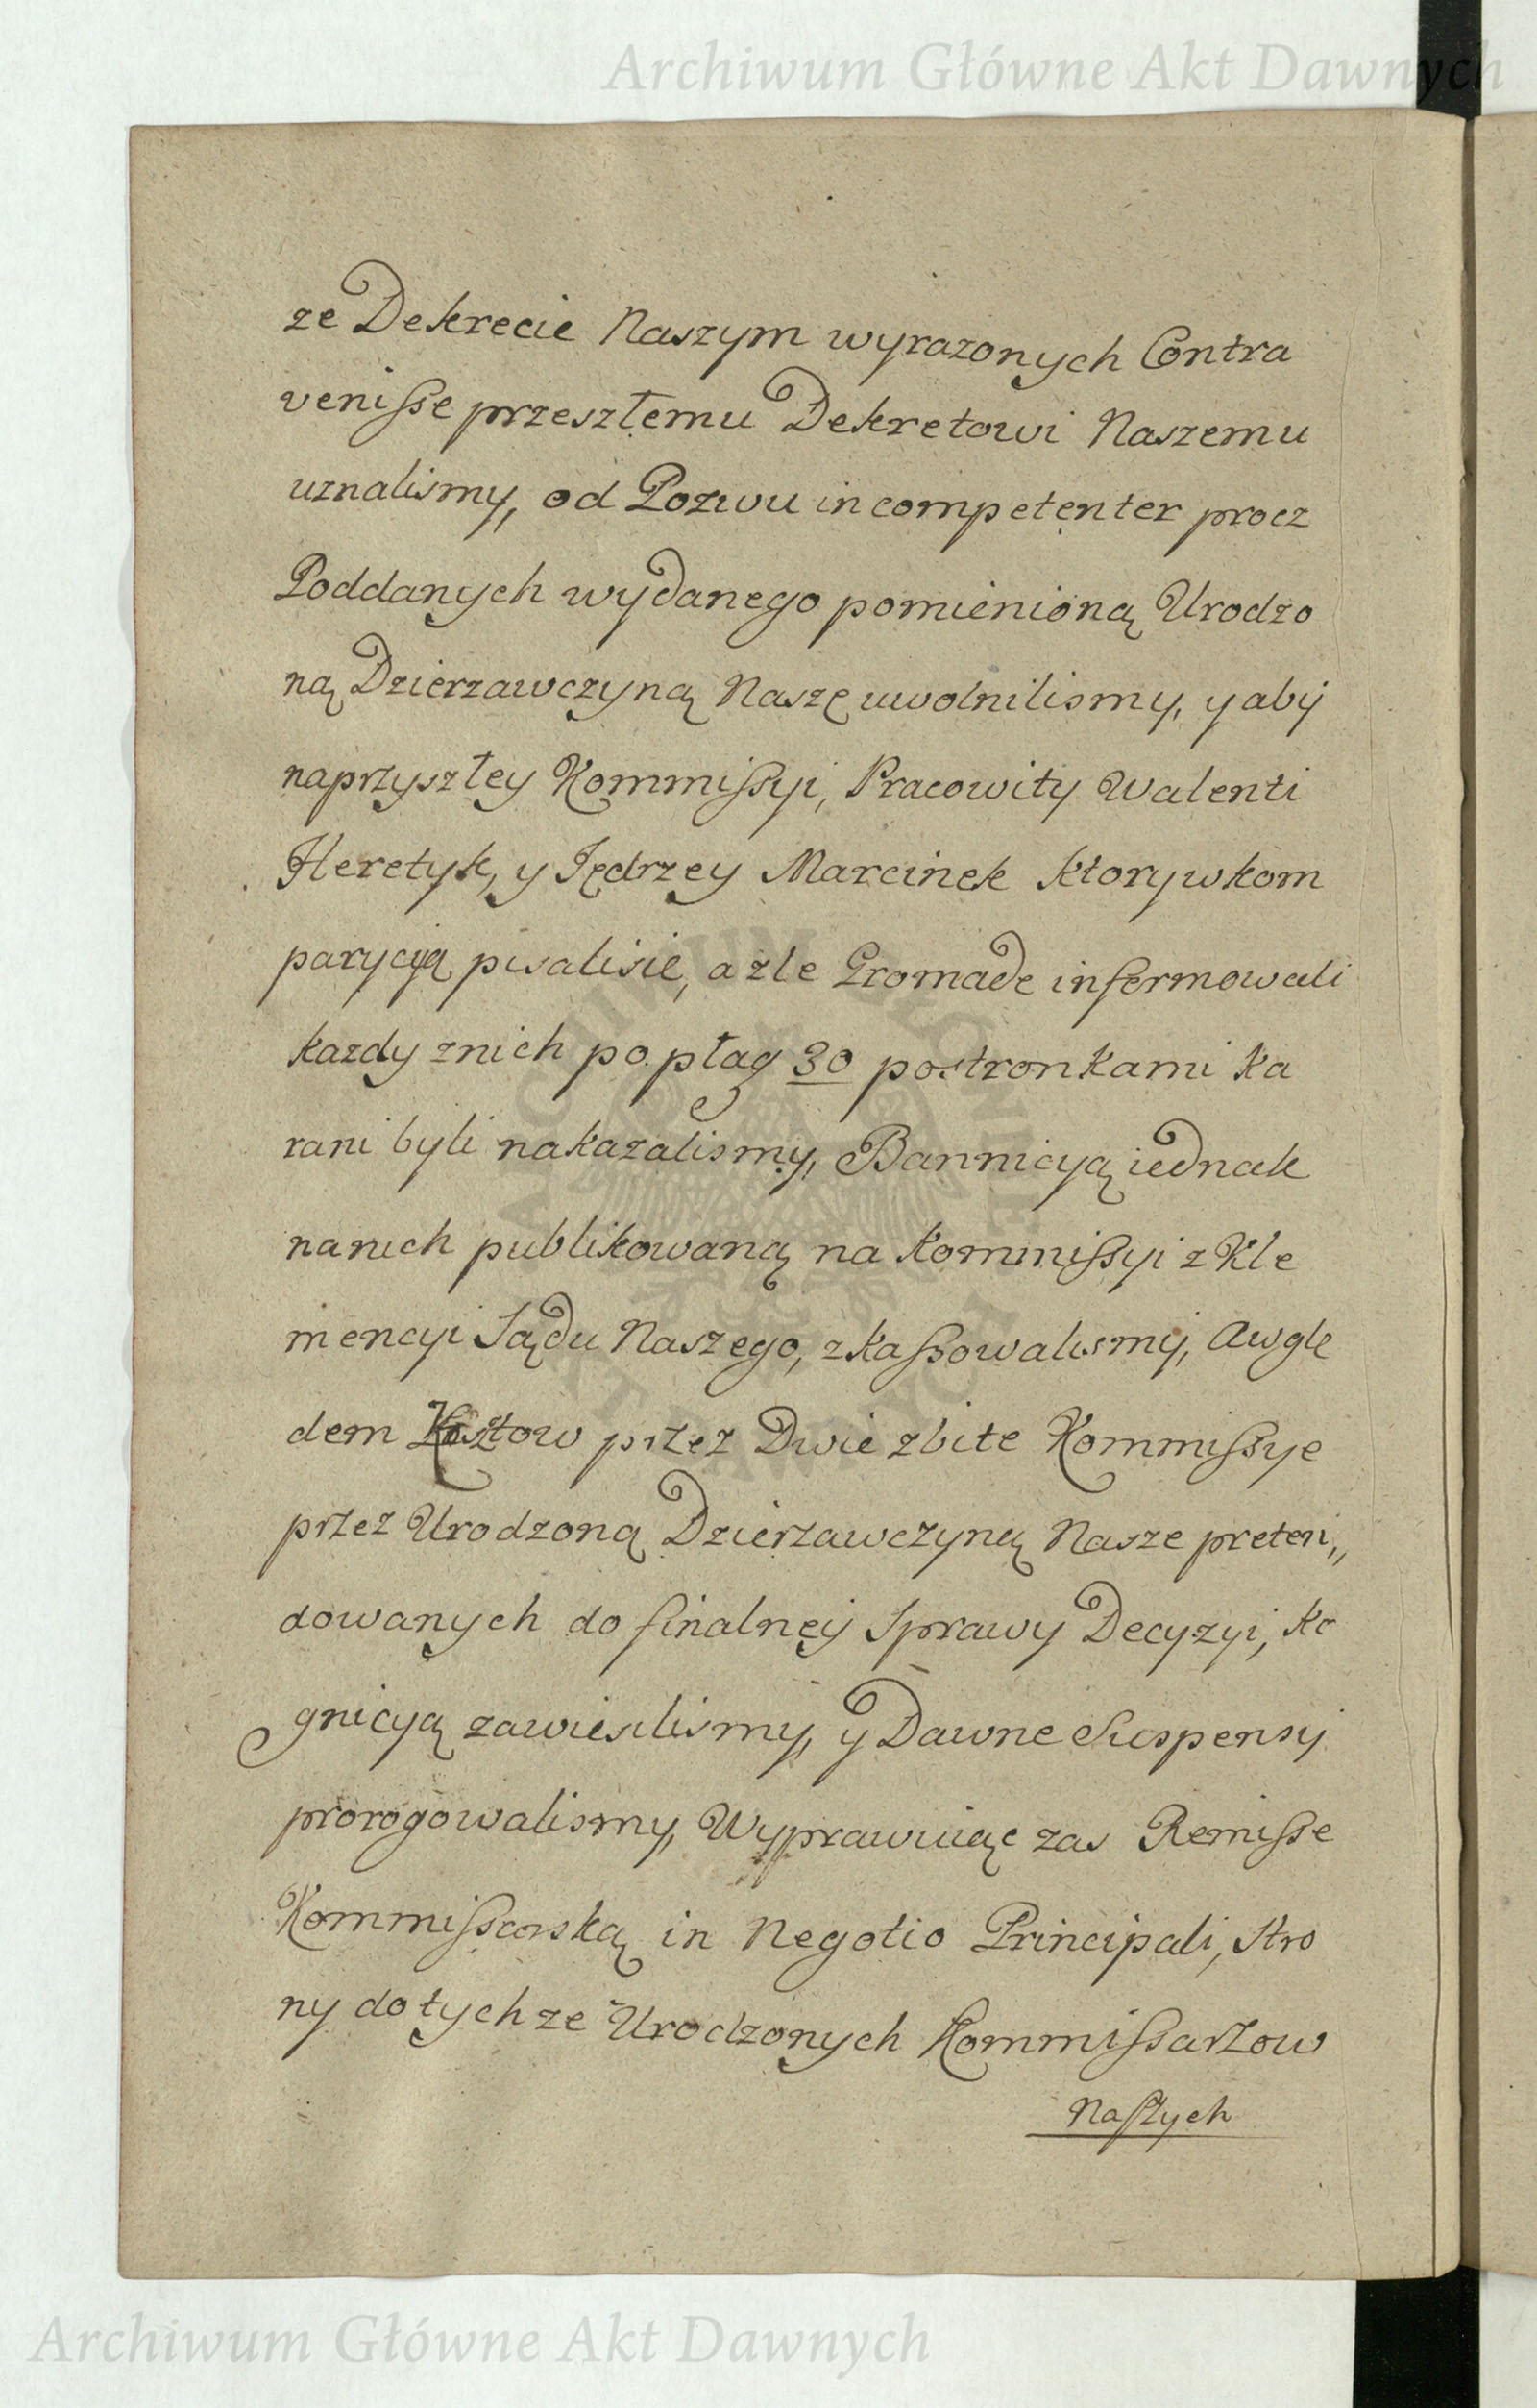 Archiwum Główne Akt Dawnych
ze Dekrecie Naszym wyrazonych Contra
venisse przeszłemu Dekretowi Naszemu
uznalismy, od Pozwu incompetenter procz
Poddanych wydanego pomienioną Urodzo
ną Dzierzawczyną Naszę uwolnilismy, y aby
naprzyszłey Kommissyi, Pracowity Walenti
Heretyk, y Jędrzey Marcinek ktory wkom
parycyą pisalisie, a zle Gromade informowali
kazdy znich po płag 30 postronkami ka
rani byli nakazalismy, Bannicyą iednak
nanich publikowaną na kommissyi z Kle
mencyi Sądu Naszego, zkassowalismy, Awglę
dem Kosztow przez Dwie zbite Kommissye
przez Urodzoną Dzierzawczyną Nasze preten,,
dowanych do finalney Sprawy Decyzyi, ko
gnicyą zawiesilismy, y Dawne Suspensy
prorogowalismy, Wyprawuiąc zas Remisse
Kommissorską in Negotio Principali, Stro
ny do tychze Urodzonych Kommissarzow
Naszych
Archiwum Główne Akt Dawnych